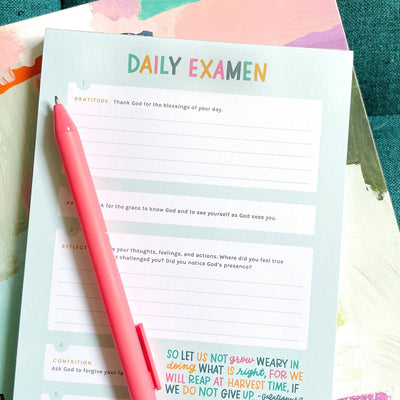 DAILY EXAMEN
1
GRATITUDE Thank God for the blessings of your day.
for the grace to know God and to see yourself as God sees you.
REFLEC
your thoughts, feelings, and actions. Where did you feel true
challenged you? Did you notice God's presence?
4
CONTRITION
Ask God to forgive your
5
SO LET US NOT grow WEARY IN
doing WHAT IS right, FOR WE
WILL REAP AT HARVEST TIME, IF
WE DO NOT GIVE UP. -Galatians